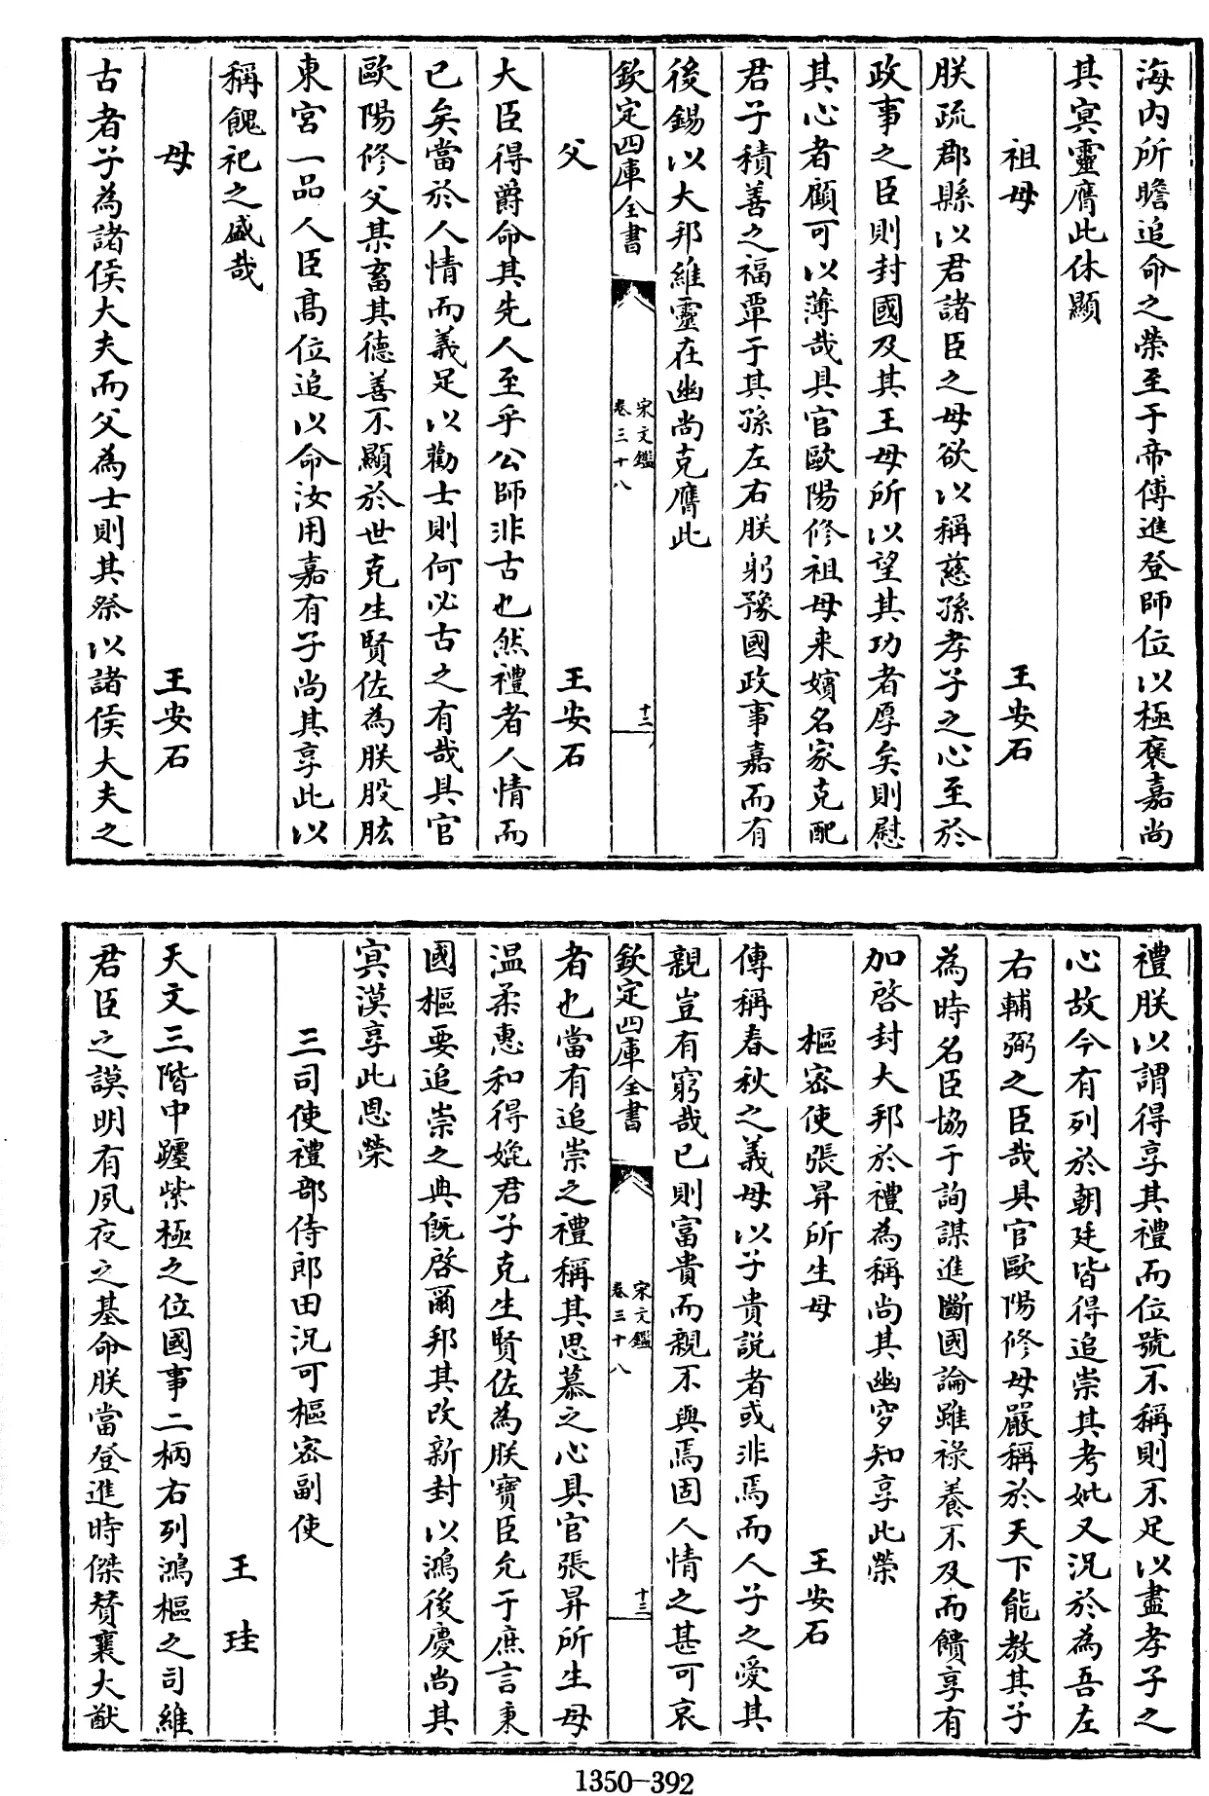 海内所瞻追命之榮至于帝傅進登師位以極褒嘉尚
其冥靈膺此休顯
祖母
王安石
朕疏郡縣以君諸臣之母欲以稱慈孫孝子之心至於
政事之臣則封國及其王母所以望其功者厚矣則慰
其心者顧可以薄哉具官歐陽修祖母来嬪名家克配
君子積善之福覃于其孫左右朕躬豫國政事嘉而有
後錫以大邦維靈在幽尚克膺此
欽定四庫全書
宋文鑑
卷三十八
十二
父
王安石
大臣得爵命其先人至乎公師非古也然禮者人情而
已矣當於人情而義足以勸士則何必古之有哉具官
歐陽修父某畜其德善不顯於世克生賢佐為朕股肱
東宮一品人臣髙位追以命汝用嘉有子尚其享此以
稱餽祀之盛哉
母
王安石
古者子為諸侯大夫而父為士則其祭以諸侯大夫之
禮朕以謂得享其禮而位號不稱則不足以盡孝子之
心故今有列於朝廷皆得追崇其考妣又況於為吾左
右輔弼之臣哉具官歐陽修母嚴稱於天下能教其子
為時名臣協于詢謀進斷國論雖祿養不及而饋享有
加啓封大邦於禮為稱尚其幽穸知享此榮
樞密使張昇所生母
王安石
傳稱春秋之義母以子貴説者或非焉而人子之愛其
親豈有窮哉已則富貴而親不與焉固人情之甚可哀
欽定四庫全書
宋文鑑
卷三十八
十三
者也當有追崇之禮稱其思慕之心具官張昇所生母
温柔惠和得媲君子克生賢佐為朕寶臣允于庶言秉
國樞要追崇之典既啓爾邦其改新封以鴻後慶尚其
冥漠享此恩榮
三司使禮部侍郎田況可樞密副使
王珪
天文三階中躔紫極之位國事二柄右列鴻樞之司維
君臣之謨明有夙夜之基命朕當登進時傑賛襄大猷
1350-392